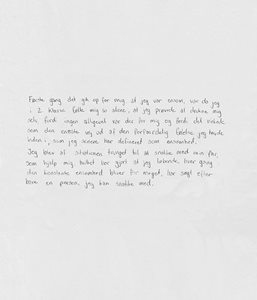 Første gang det gik op for mig at jeg var ensom, var da jeg
i 2. klasse følte mig så alene, at jeg prøvede at dræbe mig
selv, fordi ingen alligevel var der for mig og fordi det virkede
som den eneste vej ud af den forfærdelig følelse jeg havde
inden i, som jeg senere har defineret som ensomhed.
Jeg blev af situationen tvunget til at snakke med min far,
som hjalp mig hvilket har gjort at jeg løbende, hver gang
den konstante ensomhed bliver for meget, har søgt efter
bare en person, jeg kan snakke med.